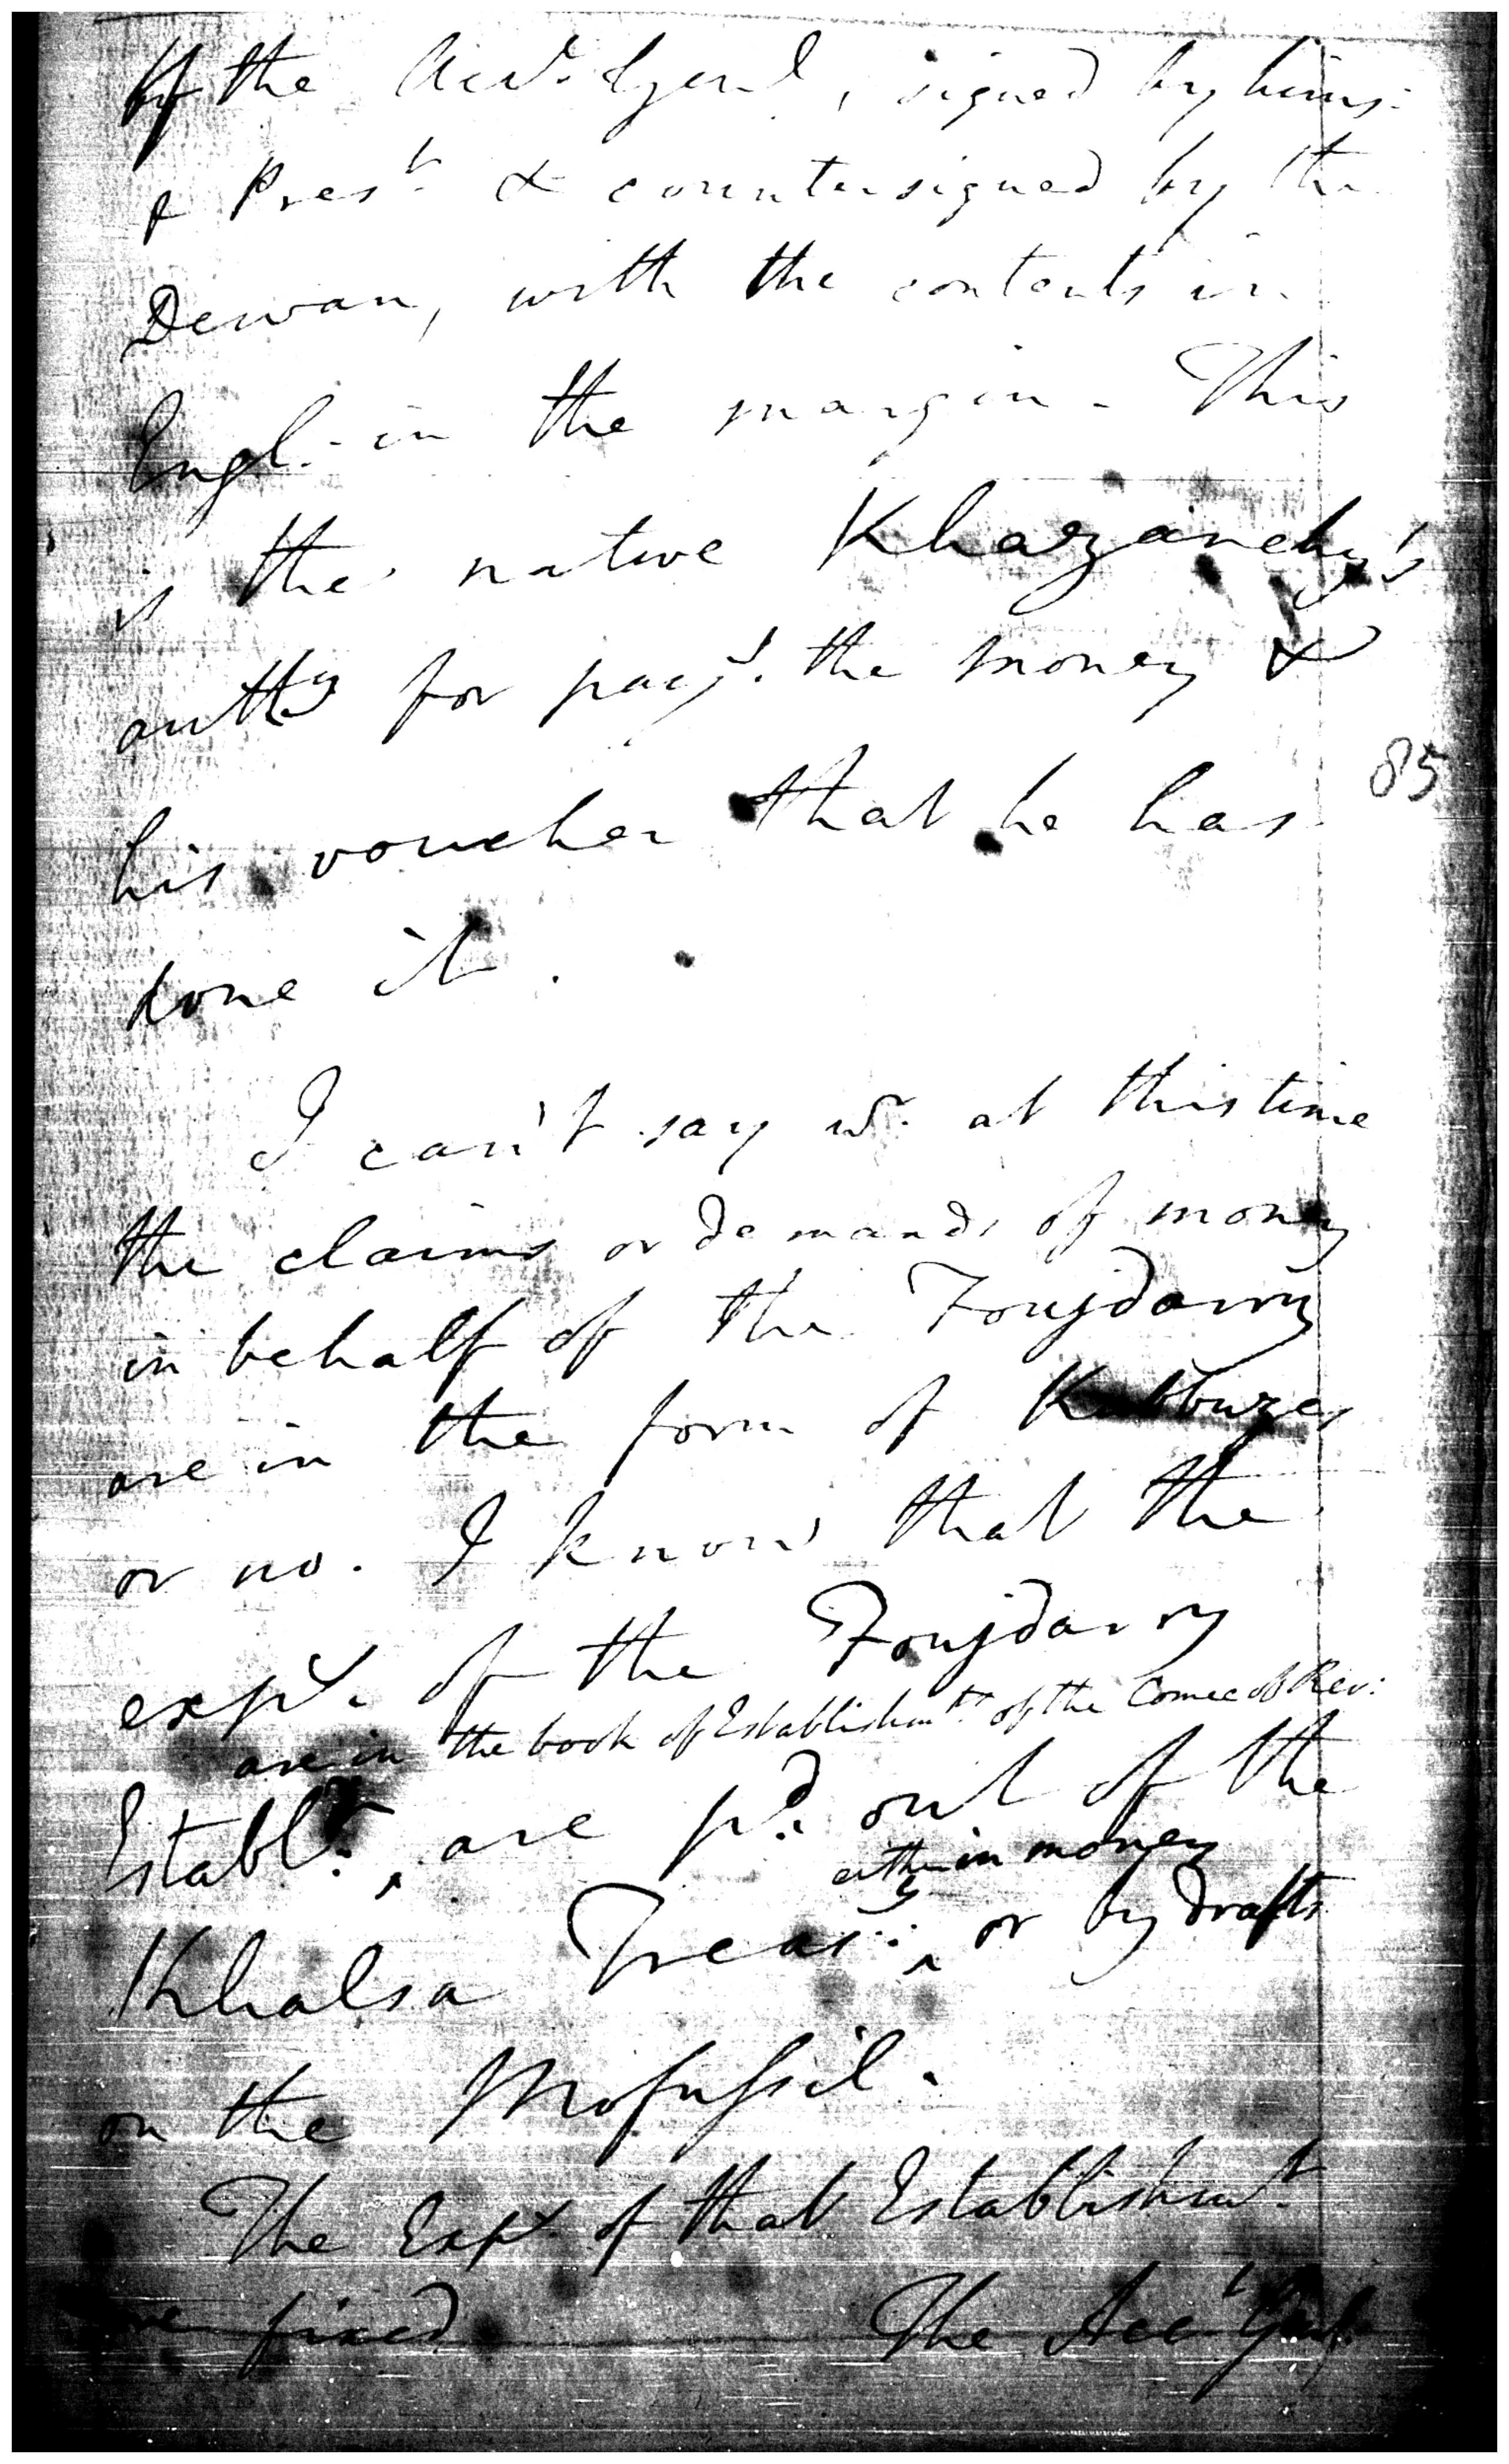 of the Acct. Genl, signed by hims:
& Prest. & countersigned by the
Dewan, with the contents in
Engl. in the margin. This
is the native Khazanchy's
authy for payg. the money &
85
his voucher that he has
done it.
I can't say wr. at this time
the claims or demands of money
in behalf of the Foujdarry
are in the form of Kubbuzes
or no. I know that the
expx. of the Foujdarry
are in the book of Establishmts. of the Comee of Rev:
Establt., are pd. out of the
either in money
Khalsa Treasy:, or by drafts
on the Mofussil.
The Expx. of that Establishmt.
are fixed The Acct Genl.